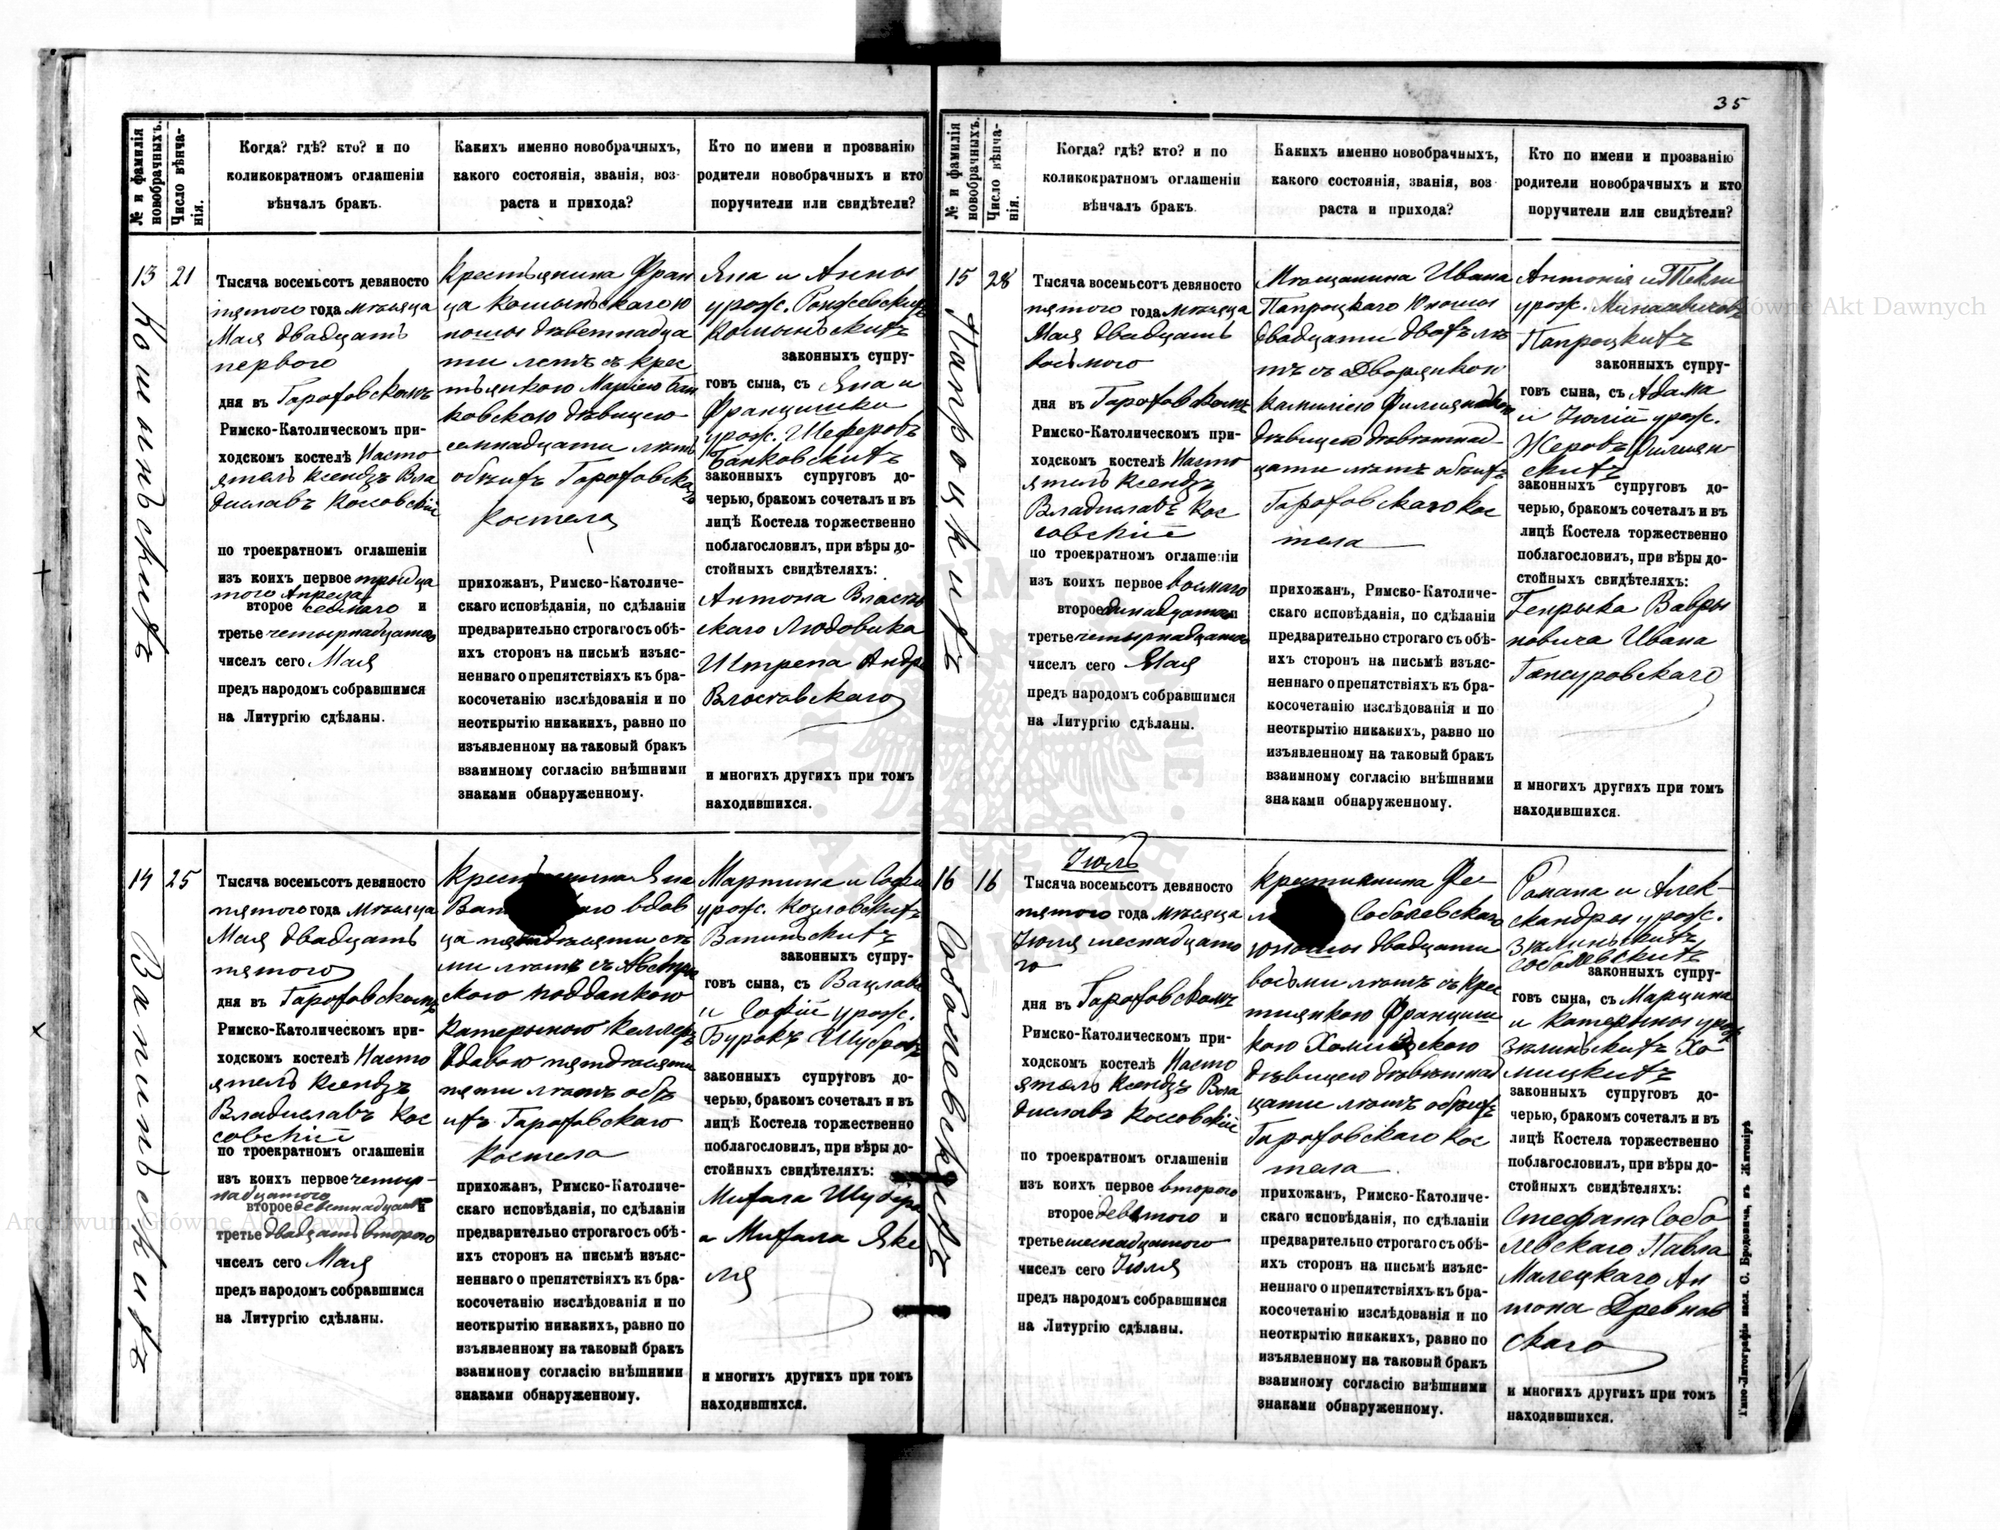 35
№ и фамилія новобрачныхъ.
Число вѣнчанія.
Когда? гдѣ? кто? и по
коликократномъ оглашеніи
вѣнчалъ бракъ.
Какихъ именно новобрачныхъ,
какого состоянія, званія, воз
раста и прихода?
Кто по имени и прозванію
родители новобрачныхъ и кто
поручители или свидѣтели?
13
21
Тысяча восемьсотъ девяносто
пятого года мѣсяца
Мая двадцать
первого
дня въ Гороховскомъ
Римско-Католическомъ при-
ходскомъ костелѣ Насто
ятель Ксендзъ Вла
диславъ Коссовскій
по троекратномъ оглашеніи
изъ коихъ первое тридца
того Апреля
второе седмаго и
третье четырнадцатаго
чиселъ сего Мая
предъ народомъ собравшимся
на Литургію сдѣланы.
Крестьянина Фран
ца
ти летъ съ крес
тьянкою Маріею Бан
ковскою дѣвицею
семнадцати лѣтъ
обоихъ Гороховскаго
Костела
прихожанъ, Римско-Католиче-
скаго исповѣданія, по сдѣланіи
предварительно строгаго съ обѣ-
ихъ сторонъ на письмѣ изъяс-
неннаго о препятствіяхъ къ бра-
косочетанію изслѣдованія и по
неоткрытію никакихъ, равно по
изъявленному на таковый бракъ
взаимному согласію внѣшними
знаками обнаруженному.
Яна и Анны
урож.
законныхъ супру-
говъ сына, съ Яна и
Францишки
урож. Шеферовъ
Банковскихъ
законныхъ супруговъ до-
черью, бракомъ сочеталъ и въ
лицѣ Костела торжественно
поблагословилъ, при вѣры до-
стойныхъ свидѣтеляхъ:
Антона
скаго Людовика
Штрепа Андр
и многихъ другихъ при томъ
находившихся.
14
25
Тысяча восемьсотъ девяносто
пятого года мѣсяца
Мая двадцать
пятого
дня въ Гороховскомъ
Римско-Католическомъ при-
ходскомъ костелѣ Насто
ятель Ксендзъ
Владиславъ Кос
совскій
по троекратномъ оглашеніи
изъ коихъ первое четыр-
надцатого
второе девятнадцатого и
третье двадцать второго
чиселъ сего Мая
предъ народомъ собравшимся
на Литургію сдѣланы.
Яна
вдов
ца
ми лѣтъ съ Австрій
скою подданкою
Катерыною Келлеръ
вдовою пятдесяти
пяти лѣтъ обо
ихъ Гороховскаго
Костела
прихожанъ, Римско-Католиче-
скаго исповѣданія, по сдѣланіи
предварительно строгаго съ обѣ-
ихъ сторонъ на письмѣ изъяс-
неннаго о препятствіяхъ къ бра-
косочетанію изслѣдованія и по
неоткрытію никакихъ, равно по
изъявленному на таковый бракъ
взаимному согласію внѣшними
знаками обнаруженному.
Мартина и Софіи
урож. Козловскихъ
Вапинскихъ
законныхъ супру-
говъ сына, съ Вацлава
и Софіи урож.
Буракъ
законныхъ супруговъ до-
черью, бракомъ сочеталъ и въ
лицѣ Костела торжественно
поблагословилъ, при вѣры до-
стойныхъ свидѣтеляхъ:
Михала
а Михала Яке
ля
и многихъ другихъ при томъ
находившихся.
№ и фамилія новобрачныхъ.
Число вѣнчанія.
Когда? гдѣ? кто? и по
коликократномъ оглашеніи
вѣнчалъ бракъ.
Какихъ именно новобрачныхъ,
какого состоянія, званія, воз
раста и прихода?
Кто по имени и прозванію
родители новобрачныхъ и кто
поручители или свидѣтели?
15
28
Папроцкихъ
Тысяча восемьсотъ девяносто
пятого года мѣсяца
Мая двадцать
восьмого
дня въ Гороховскомъ
Римско-Католическомъ при-
ходскомъ костелѣ Насто
ятель Ксендзъ
Владиславъ Кос
совскій
по троекратномъ оглашеніи
изъ коихъ первое восмаго
второе
третье четырнадцатаго
чиселъ сего Мая
предъ народомъ собравшимся
на Литургію сдѣланы.
Мѣщанина Ивана
Папроцкаго юноши
двадцати двохъ лѣ
тъ съ Дворянкою
Камиліею
дѣвицею девятнад-
цати лѣтъ обоихъ
Гороховскаго Кос
тела
прихожанъ, Римско-Католиче-
скаго исповѣданія, по сдѣланіи
предварительно строгаго съ обѣ-
ихъ сторонъ на письмѣ изъяс-
неннаго о препятствіяхъ къ бра-
косочетанію изслѣдованія и по
неоткрытію никакихъ, равно по
изъявленному на таковый бракъ
взаимному согласію внѣшними
знаками обнаруженному.
Антонія и Текли
урож.
Папроцкихъ
законныхъ супру-
говъ сына, съ Адама
и Юліи урож.
законныхъ супруговъ до-
черью, бракомъ сочеталъ и въ
лицѣ Костела торжественно
поблагословилъ, при вѣры до-
стойныхъ свидѣтеляхъ:
Генрыка Вавры
новича Ивана
и многихъ другихъ при томъ
находившихся.
16
16
Соболевскихъ
Іюль
Тысяча восемьсотъ девяносто
пятого года мѣсяца
Іюля шеснадцато
го
дня въ Гороховскомъ
Римско-Католическомъ при-
ходскомъ костелѣ Насто
ятель Ксендзъ Вла
диславъ Коссовскій
по троекратномъ оглашеніи
изъ коихъ первое второго
второе девятого и
третье шеснадцатого
чиселъ сего Іюля
предъ народомъ собравшимся
на Литургію сдѣланы.
Крестьянина Фе-
Соболевскаго
юноши двадцати
восьми лѣтъ съ крес
тьянкою Францишкою
дѣвицею девятнад
цати лѣтъ обоихъ
Гороховскаго Кос
тела
прихожанъ, Римско-Католиче-
скаго исповѣданія, по сдѣланіи
предварительно строгаго съ обѣ-
ихъ сторонъ на письмѣ изъяс-
неннаго о препятствіяхъ къ бра-
косочетанію изслѣдованія и по
неоткрытію никакихъ, равно по
изъявленному на таковый бракъ
взаимному согласію внѣшними
знаками обнаруженному.
Романа и Алек-
сандры урож.
Зѣлинскихъ
Соболевскихъ
законныхъ супру-
говъ сына, съ Марцина
и Катерыны урож
Зѣлинскихъ Хо
мицкихъ
законныхъ супруговъ до-
черью, бракомъ сочеталъ и въ
лицѣ Костела торжественно
поблагословилъ, при вѣры до-
стойныхъ свидѣтеляхъ:
Стефана Собо
левскаго Павла
Малецкаго Ан
тона Древнов
скаго
и многихъ другихъ при томъ
находившихся.
Типо-Литографія насл. С. Бродовича, въ Житомірѣ
Archiwum Główne Akt Dawnych
Archiwum Główne Akt Dawnych